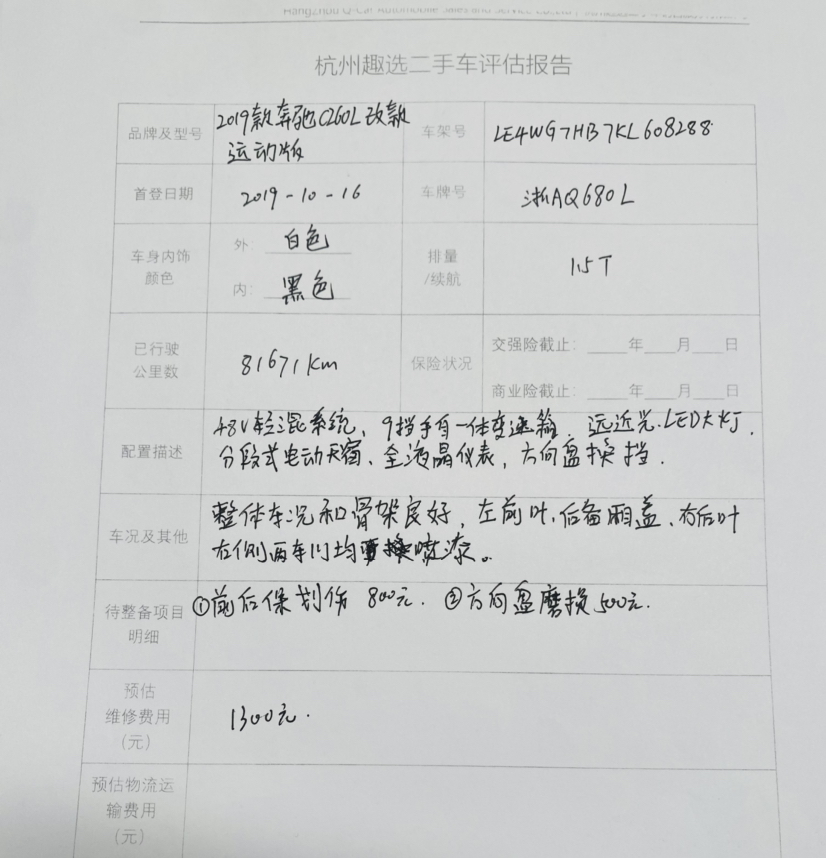 杭州趣选二手车评估报告
品牌及型号 2019款奔驰C260L改款 车架号 LE4WG7HB7KL608288
运动版
首登日期 2019-10-16 车牌号 浙AQ680L
车身内饰 外: 白色 排量 1.5T
颜色 内: 黑色 /续航
已行驶 81671km 保险状况 交强险截止: ____年____月____日
公里数 商业险截止: ____年____月____日
配置描述 48V轻混系统、9挡手自一体变速箱、远近光LED大灯、
分段式电动天窗、全液晶仪表,方向盘换挡.
车况及其他 整体车况和骨架良好,左前叶、后备厢盖、右后叶
右侧两车门均喷漆。
待整备项目 ①前后保划伤 800元. ②方向盘磨损500元.
明细
预估 1300元.
维修费用
(元)
预估物流运
输费用
(元)